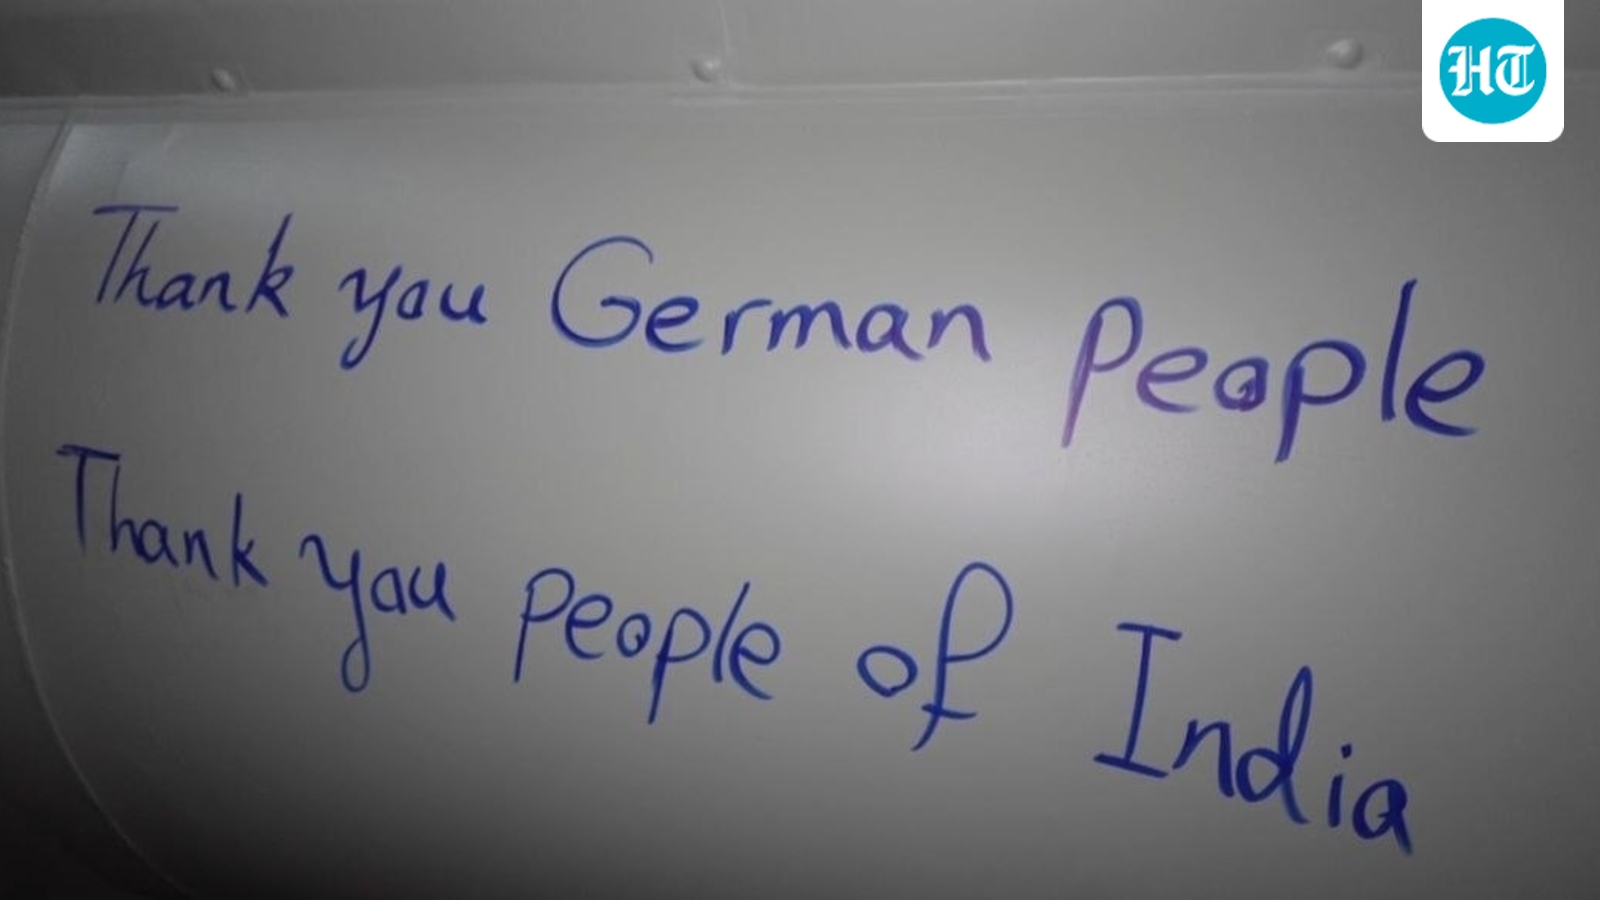 HT
Thank you German People
Thank you people of India